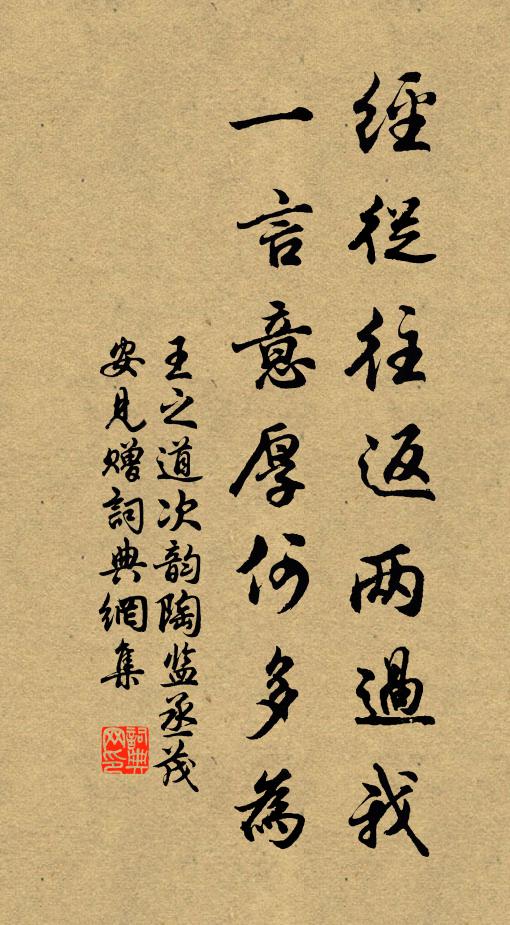 經從往返两過我
一言意厚何多為
王之道次韵陶监丞茂
安見贈詞典網集
詞典
网印